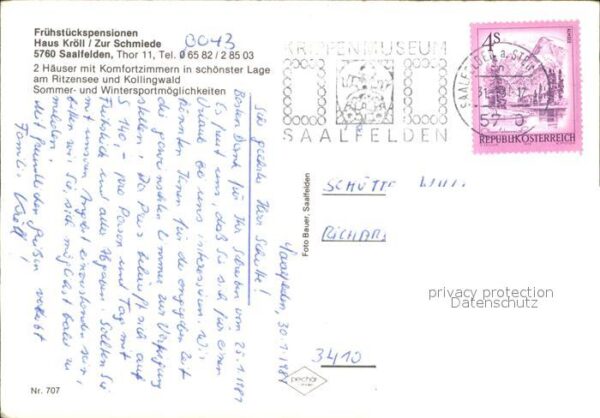 Frühstückspensionen
Haus Kröll / Zur Schmiede
5760 Saalfelden, Thor 11, Tel. 0 65 82 / 2 85 03
2 Häuser mit Komfortzimmern in schönster Lage
am Ritzensee und Kollingwald
Sommer- und Wintersportmöglichkeiten
0043
KRIPPENMUSEUM
SAALFELDEN
4S
REPUBLIK ÖSTERREICH
Saalfelden, 30.1.1981
Sehr geehrter Herr Schütte!
Besten Dank für Ihr Schreiben vom 25.1.1981
Es freut uns, daß Sie sich für einen
Urlaub bei uns interessieren. Wir
könnten Ihnen für die angegebene Zeit
die gewünschten Zimmer zur Verfügung
stellen. Der Preis beläuft sich auf
S 140,- pro Person und Tag mit
Frühstück und aller Abgaben. Sollten Sie
mit unserem Angebot einverstanden sein,
bitten wir Sie, sich möglichst bald zu
melden.
Mit freundlichen Grüßen verbleibt
Familie Kröll!
Foto Bauer, Saalfelden
SCHÜTTE
RICHARD
3410
privacy protection
Datenschutz
pechar
Nr. 707